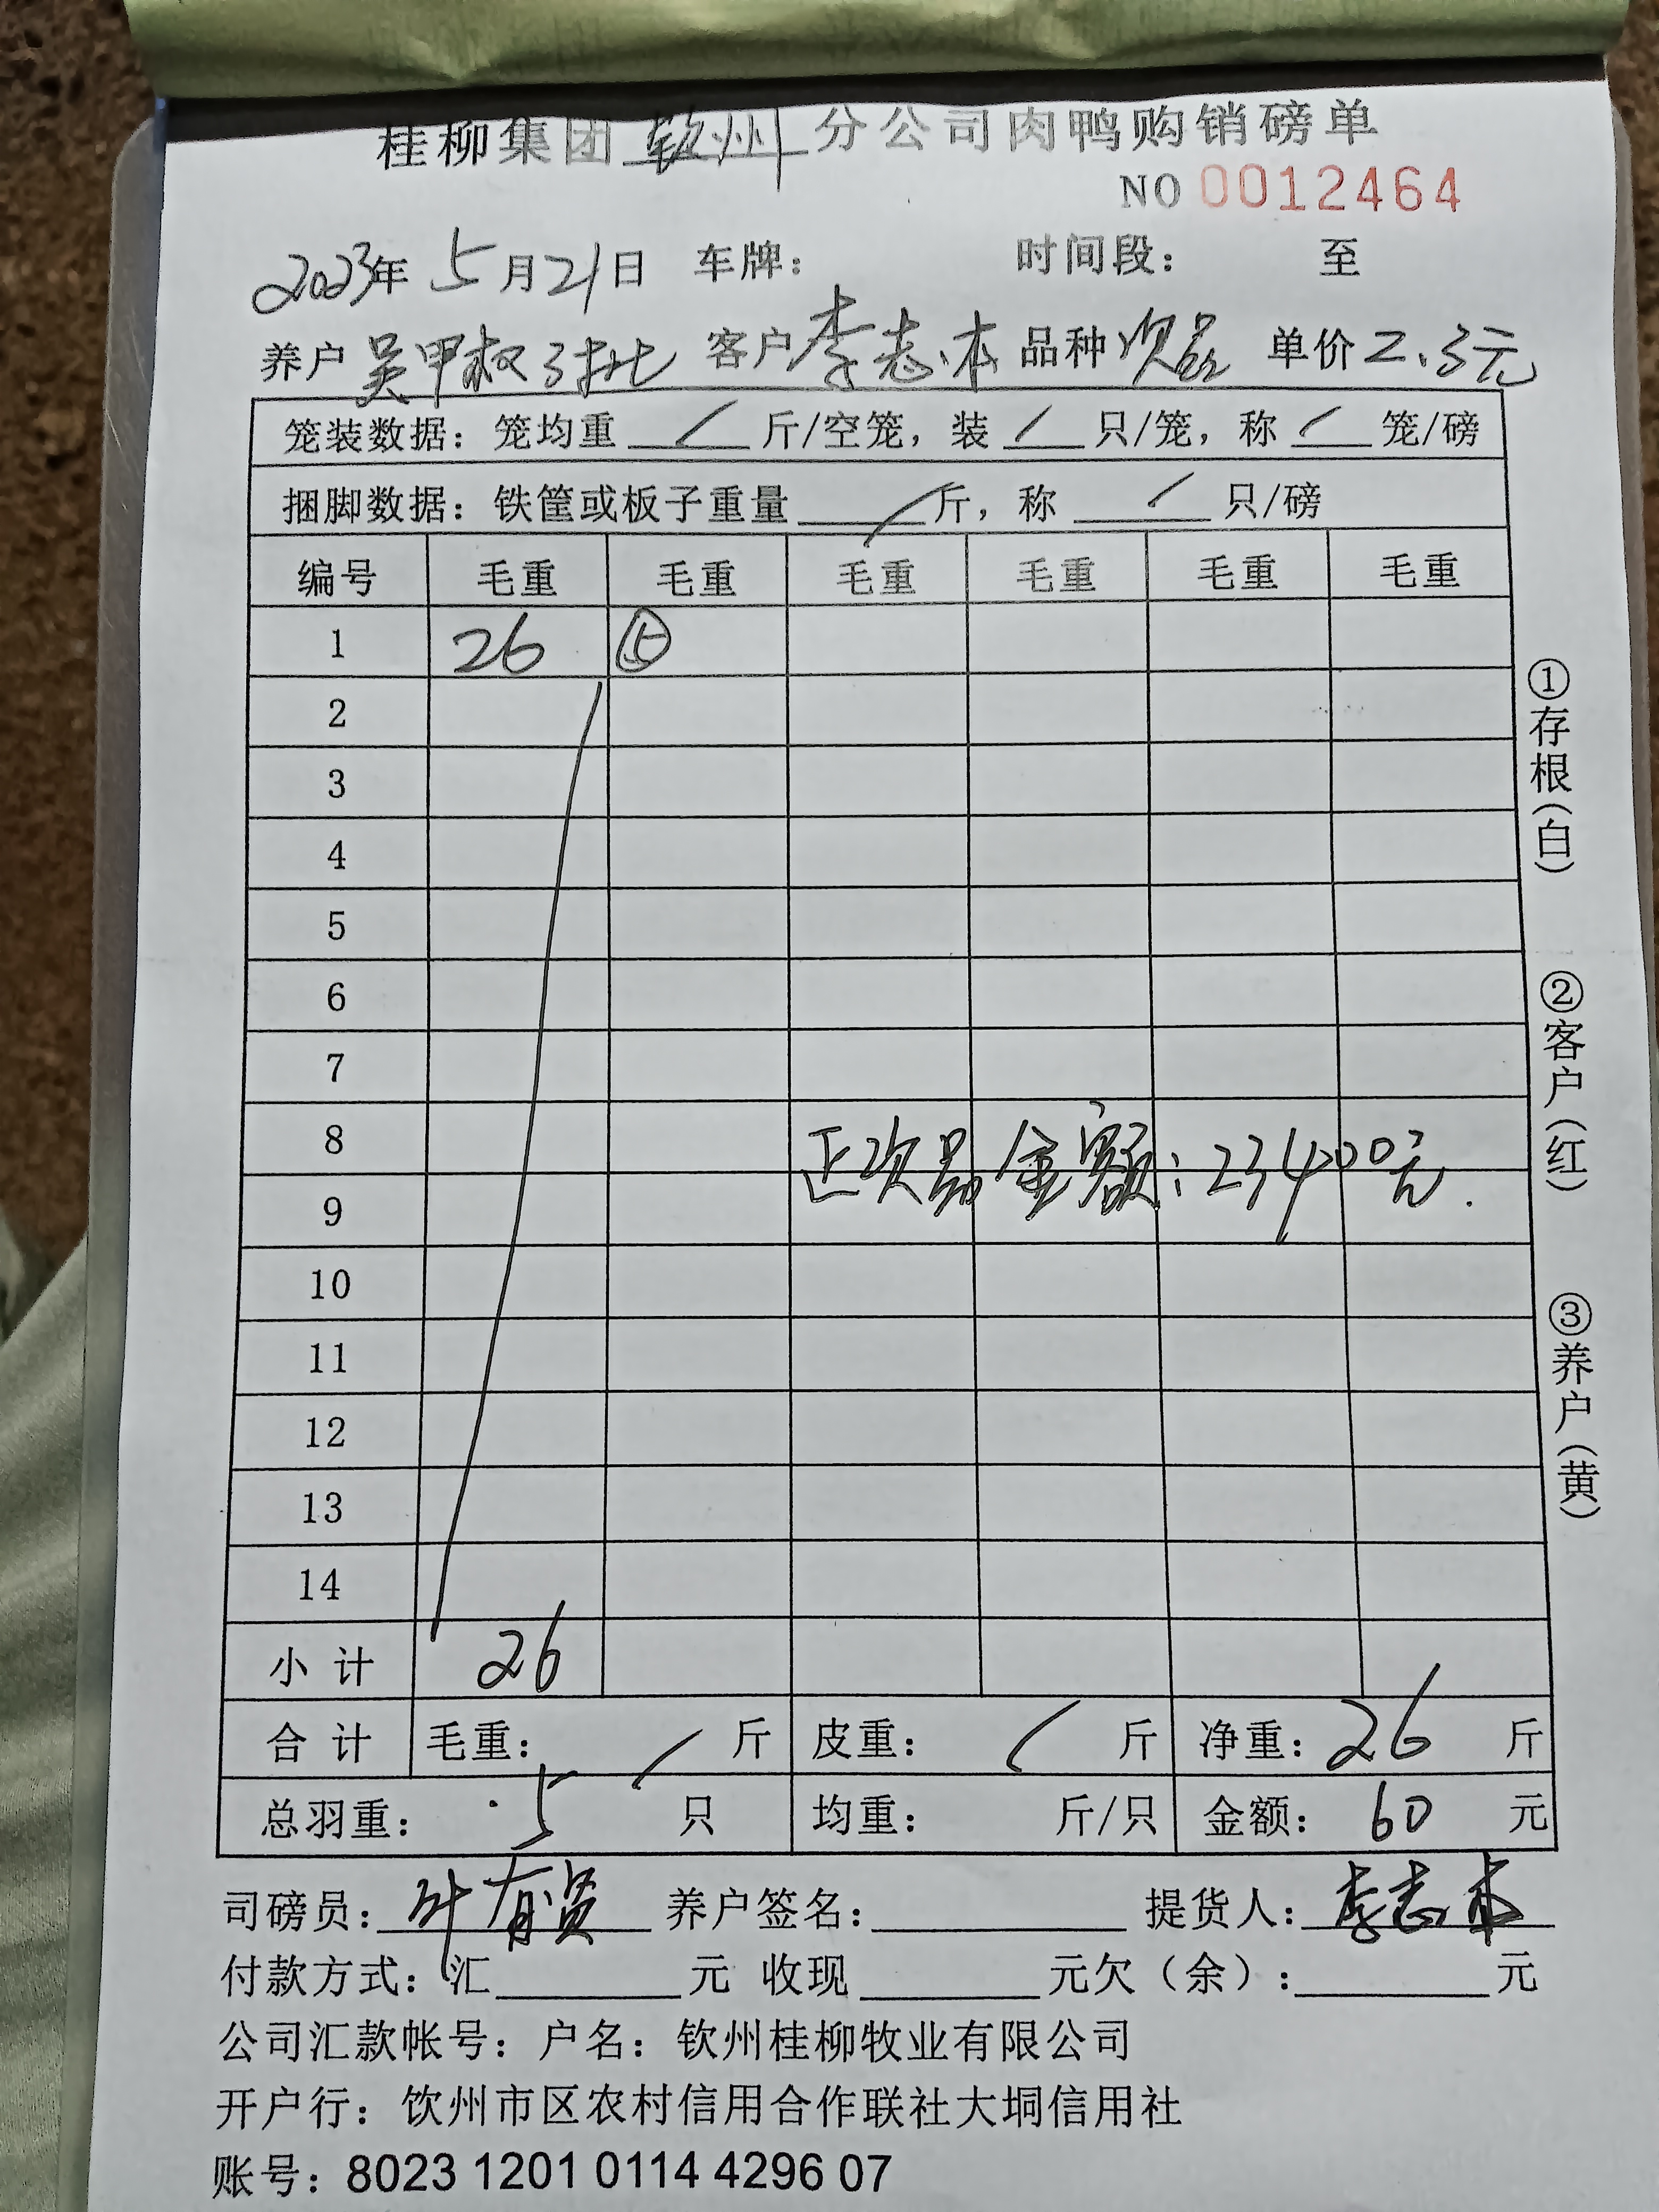 桂柳集团 钦州 分公司肉鸭购销磅单
NO 0012464
2023年 5月21日 车牌： 时间段： 至
养户 吴甲权3批 客户 李志本 品种 次品 单价 2.3元
笼装数据：笼均重 / 斤/空笼，装 / 只/笼，称 / 笼/磅
捆脚数据：铁筐或板子重量 / 斤，称 / 只/磅
编号 毛重 毛重 毛重 毛重 毛重 毛重
1 26 ⑤
2
3
4
5
6
7
8
正次品金额：23400元.
9
10
11
12
13
14
小计 26
合计 毛重： / 斤 皮重： / 斤 净重：26 斤
总羽重：5 只 均重： 斤/只 金额：60 元
司磅员：叶有贤 养户签名： 提货人：李志本
付款方式：汇 元 收现 元欠（余）： 元
公司汇款帐号：户名：钦州桂柳牧业有限公司
开户行：钦州市区农村信用合作联社大垌信用社
账号：8023 1201 0114 4296 07
①存根（白）
②客户（红）
③养户（黄）